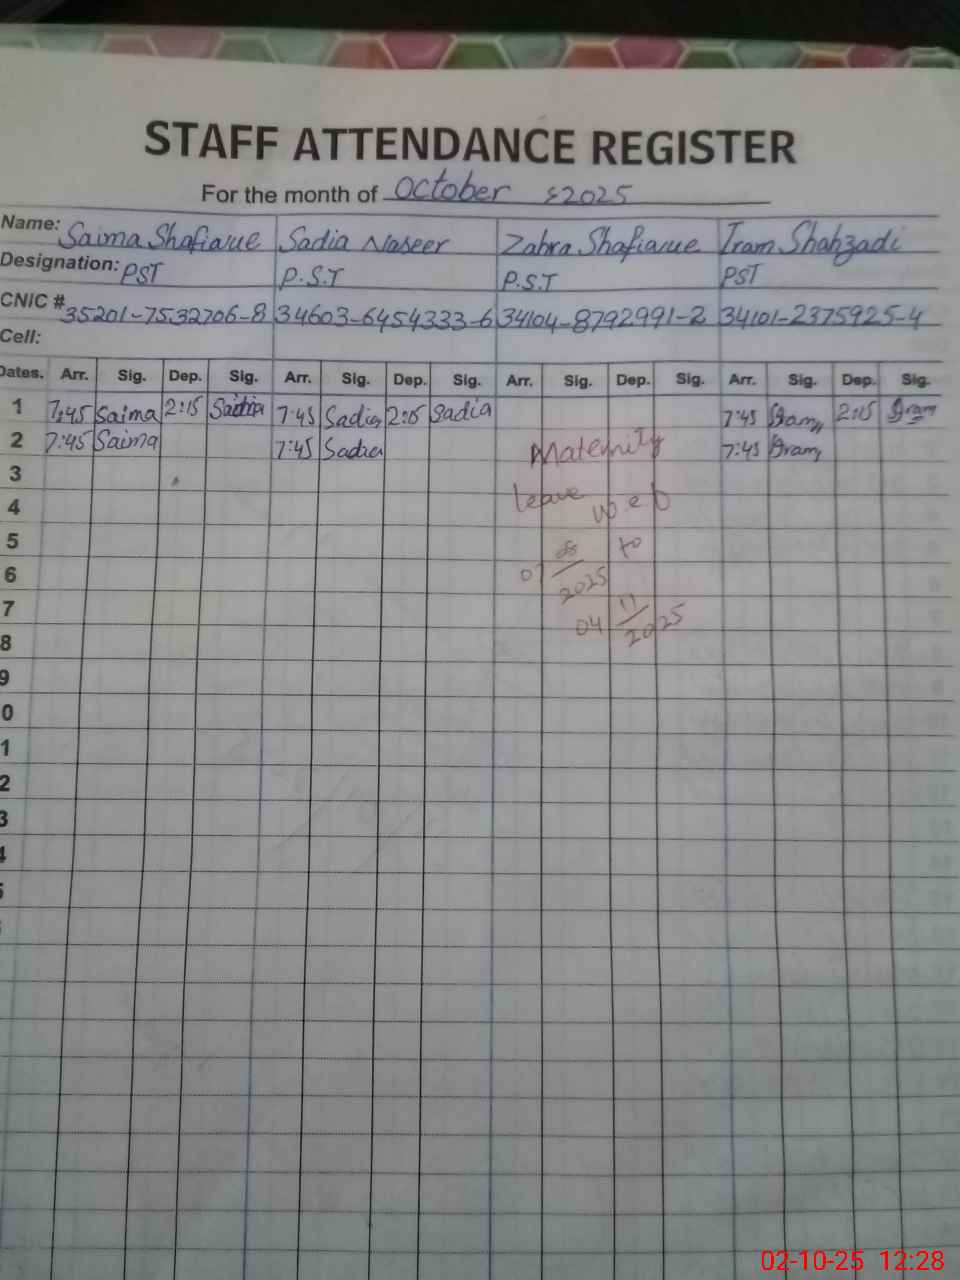 STAFF ATTENDANCE REGISTER
For the month of October 2025
Name: Saima Shafiaue Sadia Naseer Zahra Shafiaue Iram Shahzadi
Designation: PST P.S.T P.S.T PST
CNIC # 35201-7532706-8 34603-6454333-6 34104-8792991-2 34101-2375925-4
Cell:
Dates. Arr. Sig. Dep. Sig. Arr. Sig. Dep. Sig. Arr. Sig. Dep. Sig. Arr. Sig. Dep. Sig.
1 7:45 Saima 2:15 Saima 7:45 Sadia 2:15 Sadia 7:45 Iram 2:15 Iram
2 7:45 Saima 7:45 Sadia Maternity 7:45 Iram
3
4 leave w.e.
5 to
6 2025
7 04 11/2025
8
9
0
1
2
3
4
5
02-10-25 12:28